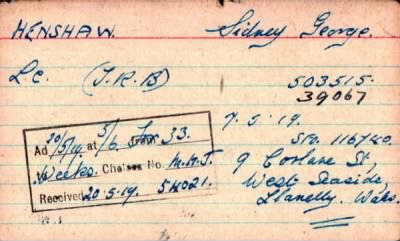 HENSHAW. Sidney George.
L.C. (T.R.B) 503515.
39067
7.5.19.
Ad 20/5/19 at 5/6 from 33.
Weeks. Chelsea No. M.H.J.
Received 20.5.19. 5H021.
S/No. 116740.
9 Corlane St,
West Seaside,
Llanelly. Wales.